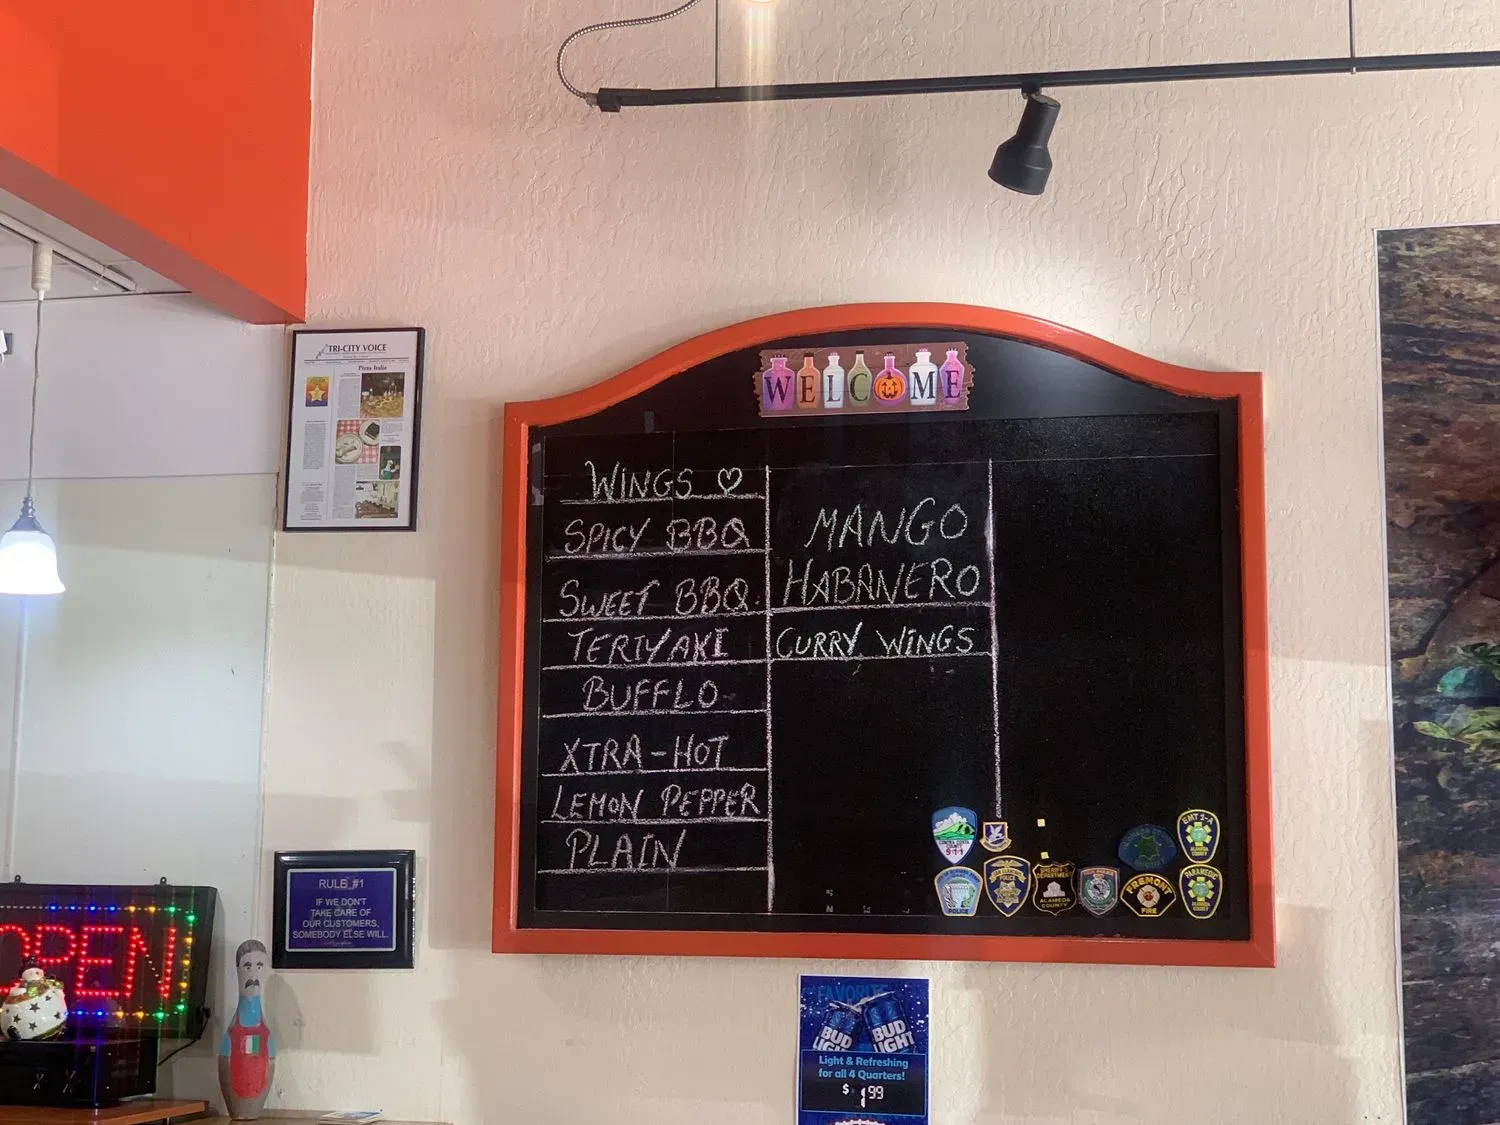 TRI-CITY VOICE
Pizza Italia
WELCOME
WINGS
SPICY BBQ
SWEET BBQ
TERIYAKI
BUFFLO
XTRA-HOT
LEMON PEPPER
PLAIN
MANGO
HABANERO
CURRY WINGS
CONTRA COSTA
COUNTY
911
POLICE
POLICE
SHERIFF'S
DEPARTMENT
ALAMEDA
COUNTY
FREMONT
FIRE
EMT 1-A
ALAMEDA
COUNTY
PARAMEDIC
ALAMEDA
COUNTY
RULE #1
IF WE DON'T
TAKE CARE OF
OUR CUSTOMERS,
SOMEBODY ELSE WILL.
OPEN
FAVORITE
BUD
LIGHT
BUD
LIGHT
Light & Refreshing
for all 4 Quarters!
$1.99